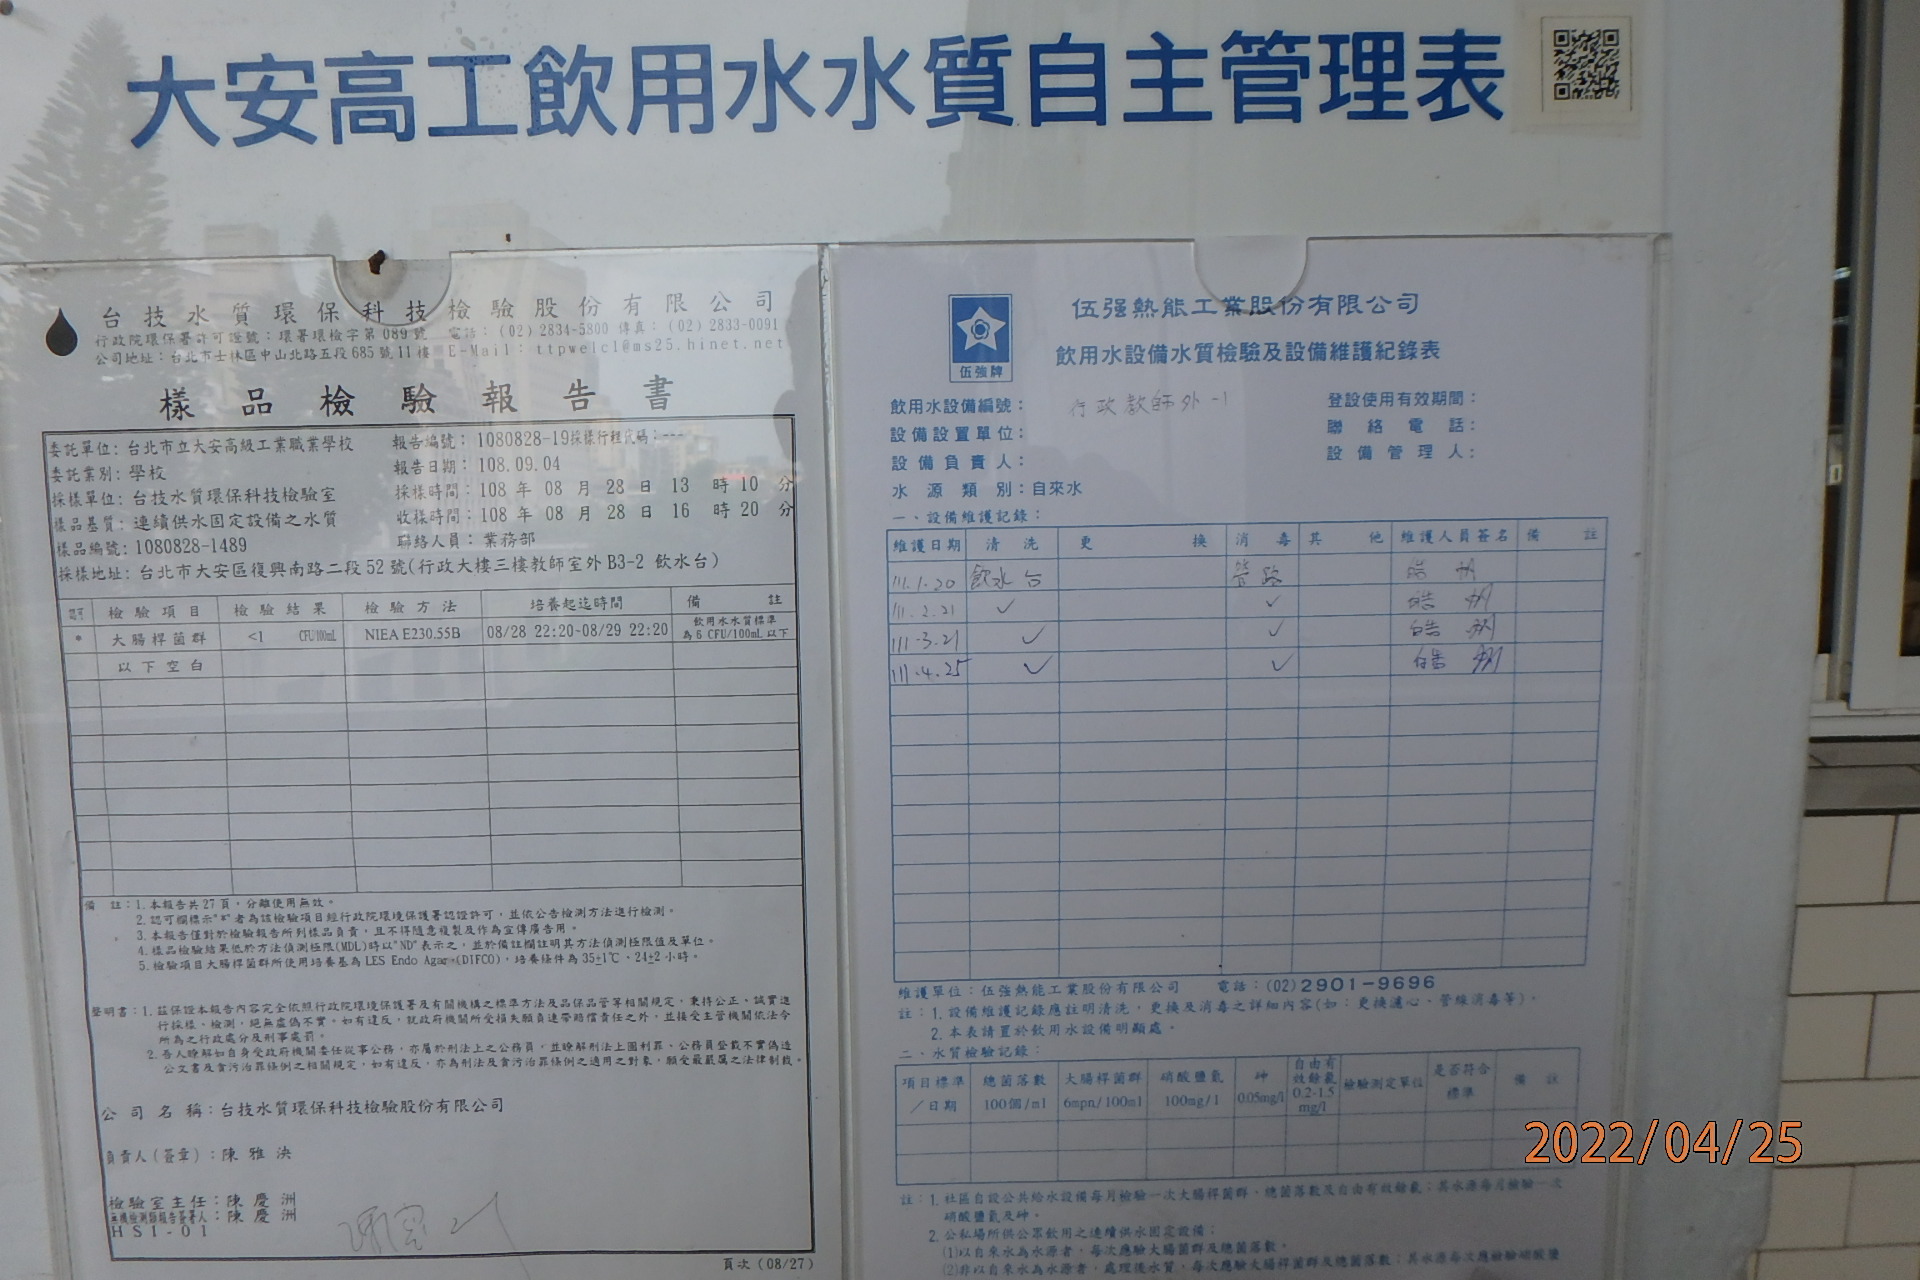 大安高工飲用水水質自主管理表
台技水質環保科技檢驗股份有限公司
行政院環保署許可證號：環署環檢字第 089 號 電話：(02) 2834-5800 傳真：(02) 2833-0091
公司地址：台北市士林區中山北路五段 685 號 11 樓 E-Mail： ttpwelc1@ms25.hinet.net
樣品檢驗報告書
委託單位：台北市立大安高級工業職業學校 報告編號：1080828-19採樣行程代碼：---
委託業別：學校 報告日期：108.09.04
採樣單位：台技水質環保科技檢驗室 採樣時間：108 年 08 月 28 日 13 時 10 分
樣品基質：連續供水固定設備之水質 收樣時間：108 年 08 月 28 日 16 時 20 分
樣品編號：1080828-1489 聯絡人員：業務部
採樣地址：台北市大安區復興南路二段 52 號(行政大樓三樓教師室外 B3-2 飲水台)
認可 檢驗項目 檢驗結果 檢驗方法 培養起迄時間 備註
* 大腸桿菌群 <1 CFU/100mL NIEA E230.55B 08/28 22:20~08/29 22:20 飲用水水質標準為 6 CFU/100mL 以下
以下空白
備註：1. 本報告共 27 頁，分離使用無效。
2. 認可欄標示"*"者為該檢驗項目經行政院環境保護署認證許可，並依公告檢測方法進行檢測。
3. 本報告僅對於檢驗報告所列樣品負責，且不得隨意複製及作為宣傳廣告用。
4. 樣品檢驗結果低於方法偵測極限(MDL)時以"ND"表示之，並於備註欄註明其方法偵測極限值及單位。
5. 檢驗項目大腸桿菌群所使用培養基為 LES Endo Agar (DIFCO)，培養條件為 35±1℃、24±2 小時。
聲明書：1. 茲保證本報告內容完全依照行政院環境保護署及有關機構之標準方法及品保品管等相關規定，秉持公正、誠實進
行採樣、檢測，絕無虛偽不實。如有違反，就政府機關所受損失願負連帶賠償責任之外，並接受主管機關依法令
所為之行政處分及刑事處罰。
2. 吾人瞭解如自身受政府機關委任從事公務，亦屬於刑法上之公務員，並瞭解刑法上圖利罪、公務員登載不實偽造
公文書及貪污治罪條例之相關規定，如有違反，亦為刑法及貪污治罪條例之適用之對象，願受最嚴厲之法律制裁。
公司名稱：台技水質環保科技檢驗股份有限公司
負責人(簽章)：陳雅泱
檢驗室主任：陳慶洲
無機檢測類報告簽署人：陳慶洲
HSI-01
頁次 (08/27)
伍強牌
伍强熱能工業股份有限公司
飲用水設備水質檢驗及設備維護紀錄表
飲用水設備編號：行政教師外-1 登設使用有效期間：
設備設置單位： 聯絡電話：
設備負責人： 設備管理人：
水源類別：自來水
一、設備維護記錄：
維護日期 清洗 更換 消毒 其他 維護人員簽名 備註
111.1.20 飲水台 管路 皓州
111.2.21 ✓ ✓ 皓州
111.3.21 ✓ ✓ 皓州
111.4.25 ✓ ✓ 皓州
維護單位：伍強熱能工業股份有限公司 電話：(02)2901-9696
註：1. 設備維護記錄應註明清洗，更換及消毒之詳細內容(如：更換濾心、管線消毒等)。
2. 本表請置於飲用水設備明顯處。
二、水質檢驗記錄：
項目標準／日期 總菌落數 100個/ml 大腸桿菌群 6mpn/100ml 硝酸鹽氮 100mg/l 砷 0.05mg/l 自由有效餘氯 0.2-1.5 mg/l 檢驗測定單位 是否符合標準 備註
註：1. 社區自設公共給水設備每月檢驗一次大腸桿菌群、總菌落數及自由有效餘氯；其水源每月檢驗一次
硝酸鹽氮及砷。
2. 公私場所供公眾飲用之連續供水固定設備：
(1)以自來水為水源者，每次應驗大腸菌群及總菌落數。
(2)非以自來水為水源者，處理後水質，每次應驗大腸桿菌群及總菌落數；其水源每次應檢驗硝酸鹽
2022/04/25